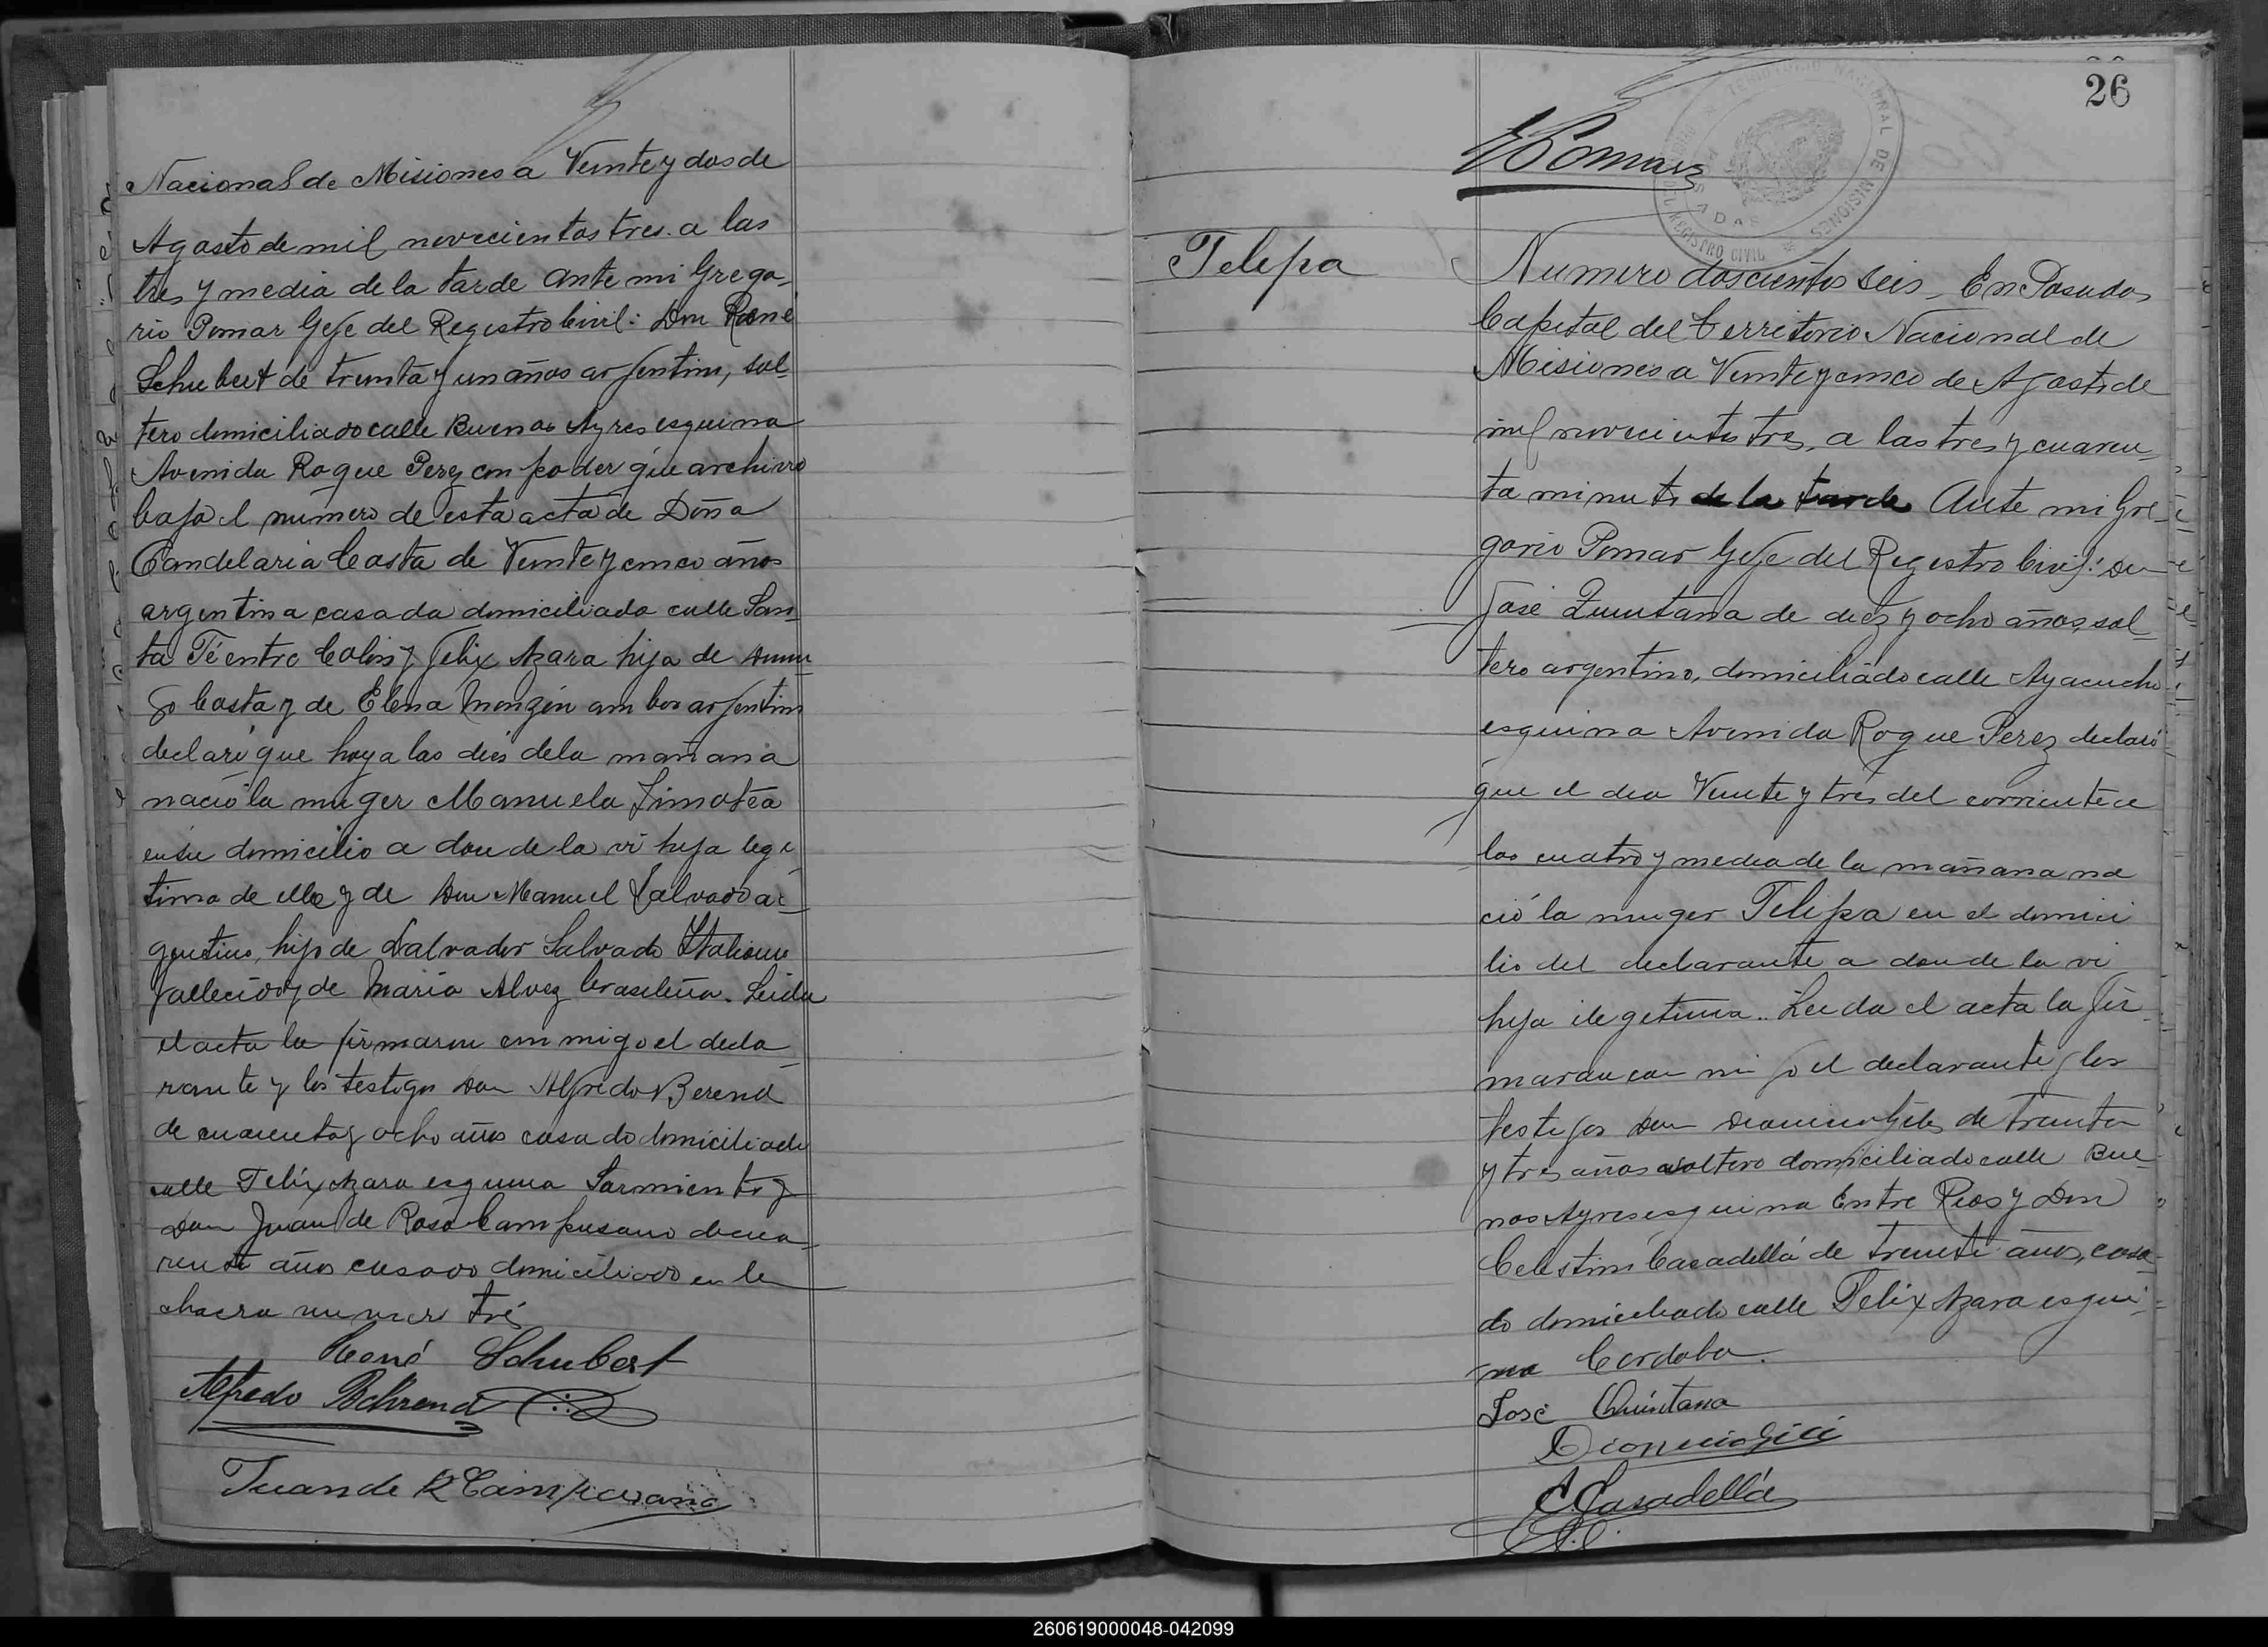 Nacional de Misiones a Veinte y dos de
Agosto de mil novecientos tres. a las
tres y media de la tarde ante mi Grego-
rio Pomar Gefe del Registro Civil: Don René
Schubert de treinta y un años argentino, sol-
tero domiciliado calle Buenos Ayres esquina
Avenida Roque Perez con poder que archivo
bajo el número de esta acta de Doña
Candelaria Costa de Veinte y cinco años
argentina casada domiciliada calle San-
ta Fé entre Colon y Felix Azara hija de Domin-
go Costa y de Elena Monzón ambos argentinos
declaró que hoy a las dies de la mañana
nació la muger Manuela Timotéa
en su domicilio a donde la vi hija legi-
tima de ella y de Don Manuel Salvado ar-
gentino, hijo de Salvador Salvado Italiano
fallecido y de Maria Alvez brasileña. Leida
el acta la firmaron con migo el decla-
rante y los testigos Don Alfredo Berend
de cuarenta y ocho años casado domiciliado
calle Felix Azara esquina Sarmiento y
Don Juan de Rosa Campusano de cua-
renta años casado domiciliado en la
chacra numero tres
René Schubert
Alfredo Behrend
Juan de R Campusano
26
G Pomar
TERRITORIO NACIONAL DE MISIONES
REGISTRO CIVIL
POSADAS
Felipa
Numero doscientos seis - En Posadas
Capital del Territorio Nacional de
Misiones a Veinte y cinco de Agosto de
mil novecientos tres, a las tres y cuaren-
ta minutos de la tarde Ante mi Gre-
gorio Pomar Gefe del Registro Civil: Don
José Quintana de diez y ocho años, sol-
tero argentino, domiciliado calle Ayacucho
esquina Avenida Roque Perez declaró
que el dia Veinte y tres del corriente a
las cuatro y media de la mañana na
ció la muger Felipa en el domici
lio del declarante a donde la vi
hija ilegitima. Leida el acta la fir-
maron con migo el declarante y los
testigos Don Dionicio Gili de treinta
y tres años soltero domiciliado calle Bue-
nos Ayres esquina Entre Rios y Don
Celestino Casadellá de treinta años, casa-
do domiciliado calle Felix Azara esqui-
na Cordoba.
José Quintana
Dionicio Gili
C. Casadellá
260619000048-042099